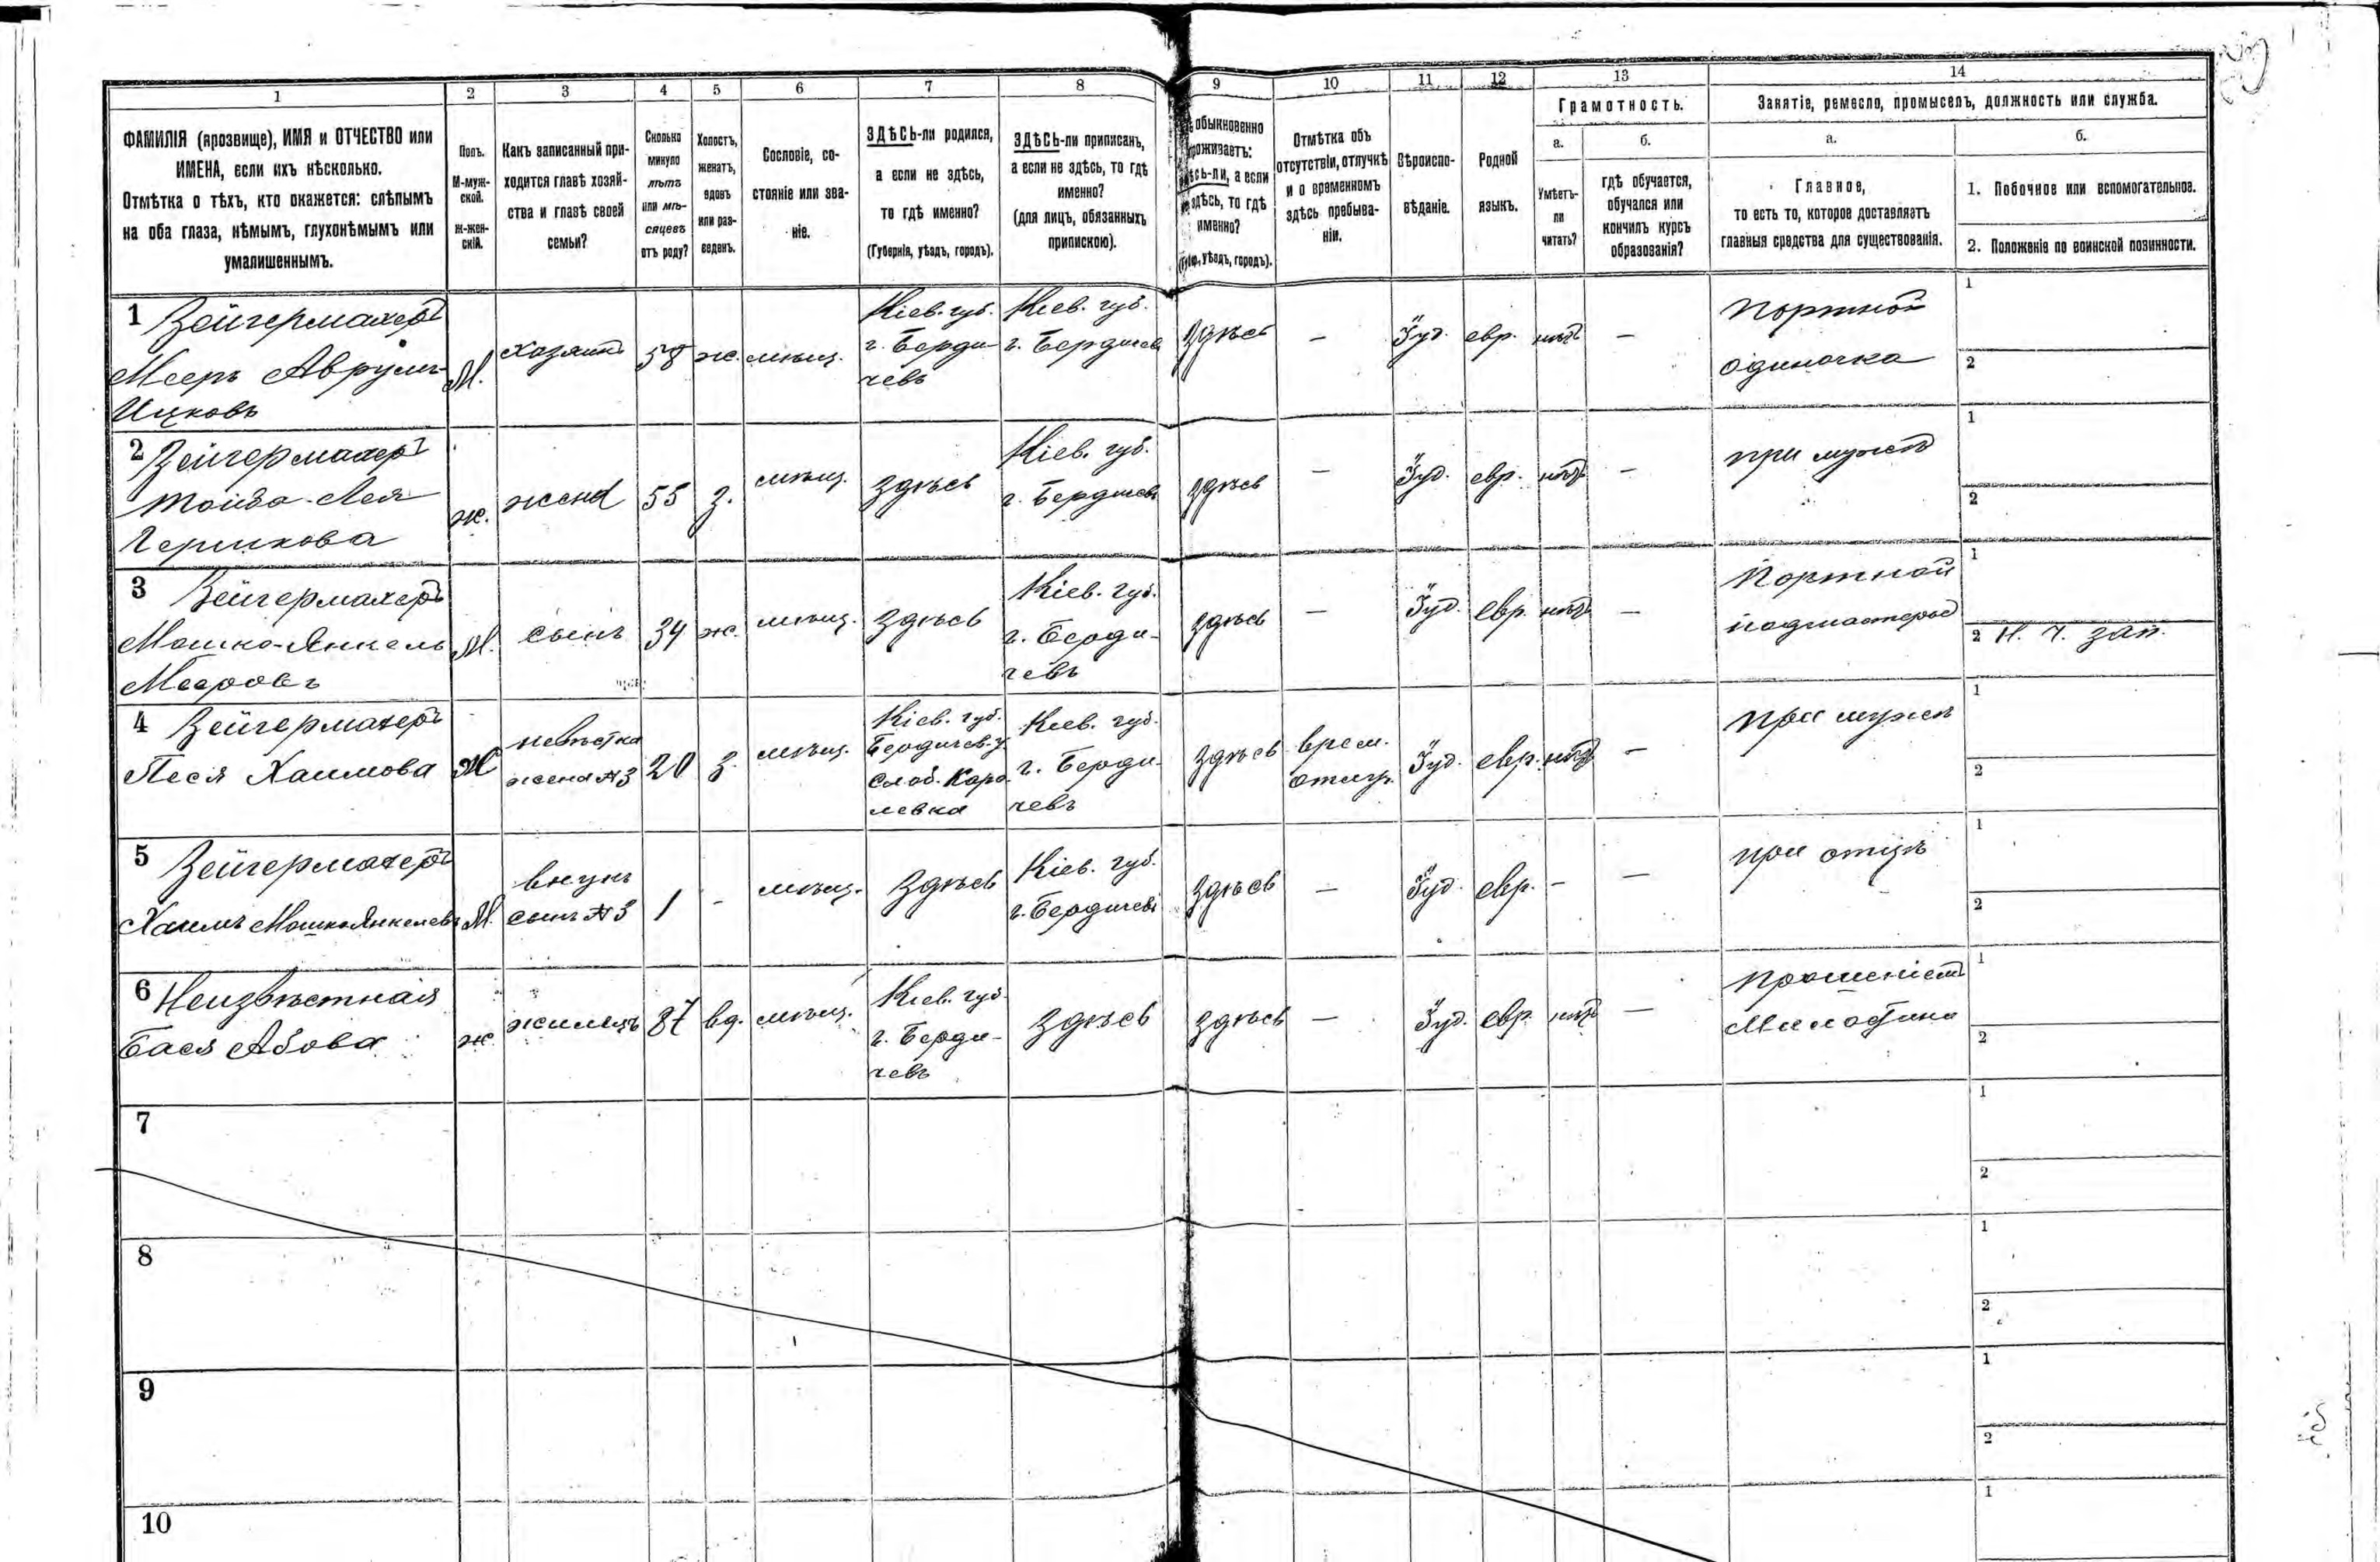 1 2 3 4 5 6 7 8 9 10 11 12 13 14
ФАМИЛІЯ (прозвище), ИМЯ и ОТЧЕСТВО или
ИМЕНА, если ихъ нѣсколько.
Отмѣтка о тѣхъ, кто окажется: слѣпымъ
на оба глаза, нѣмымъ, глухонѣмымъ или
умалишеннымъ.
Полъ.
М-муж-
ской.
Ж-жен-
скій.
Какъ записанный при-
ходится главѣ хозяй-
ства и главѣ своей
семьи?
Сколько
минуло
лѣтъ
или мѣ-
сяцевъ
отъ роду?
Холостъ,
женатъ,
вдовъ
или раз-
веденъ.
Сословіе, со-
стояніе или зва-
ніе.
ЗДѢСЬ-ли родился,
а если не здѣсь,
то гдѣ именно?
(Губернія, уѣздъ, городъ).
ЗДѢСЬ-ли приписанъ,
а если не здѣсь, то гдѣ
именно?
(для лицъ, обязанныхъ
припискою).
обыкновенно
проживаетъ:
здѣсь-ли, а если
не здѣсь, то гдѣ
именно?
(Губ., уѣздъ, городъ).
Отмѣтка объ
отсутствіи, отлучкѣ
и о временномъ
здѣсь пребыва-
ніи.
Вѣроиспо-
вѣданіе.
Родной
языкъ.
Грамотность.
а.
Умѣетъ-
ли
читать?
б.
гдѣ обучается,
обучался или
кончилъ курсъ
образованія?
Занятіе, ремесло, промыселъ, должность или служба.
а.
Главное,
то есть то, которое доставляетъ
главныя средства для существованія.
б.
1. Побочное или вспомогательное.
2. Положеніе по воинской повинности.
1 Зейгермахеръ
Мееръ Аврумъ-
Ицковъ
М.
хозяинъ
58
ж.
мѣщ.
Кіев. губ.
г. Берди-
чевъ
Кіев. губ.
г. Бердичевъ
здѣсь
—
Іуд.
евр.
нѣтъ
—
Портной
одиночка
1
2
2 Зейгермахеръ
Тойба-Лея
Гершкова
ж.
жена
55
з.
мѣщ.
здѣсь
Кіев. губ.
г. Бердичевъ
здѣсь
—
Іуд.
евр.
нѣтъ
—
при мужѣ
1
2
3 Зейгермахеръ
Мошко-Янкель
Мееровъ
М.
сынъ
34
ж.
мѣщ.
здѣсь
Кіев. губ.
г. Берди-
чевъ
здѣсь
—
Іуд.
евр.
нѣтъ
—
Портной
подмастерье
1
2 Н. Ч. зап.
4 Зейгермахеръ
Песя Хаимова
Ж
невѣстка
жена №3
20
з
мѣщ.
Кіев. губ.
Бердичев. у.
слоб. Каро-
левка
Кіев. губ.
г. Берди-
чевъ
здѣсь
врем.
отсут.
Іуд.
евр.
нѣтъ
—
при мужѣ
1
2
5 Зейгермахеръ
Хаимъ Мошко-Янкелевъ
М.
внукъ
сынъ №3
1
-
мѣщ.
здѣсь
Кіев. губ.
г. Бердичевъ
здѣсь
—
Іуд.
евр.
-
—
при отцѣ
1
2
6 Неизвѣстная
Бася Абова
ж.
жилецъ
87
вд.
мѣщ.
Кіев. губ.
г. Берди-
чевъ
здѣсь
здѣсь
—
Іуд.
евр.
нѣтъ
—
Прошеніемъ
Милостини
1
2
7
1
2
8
1
2
9
1
2
10
1